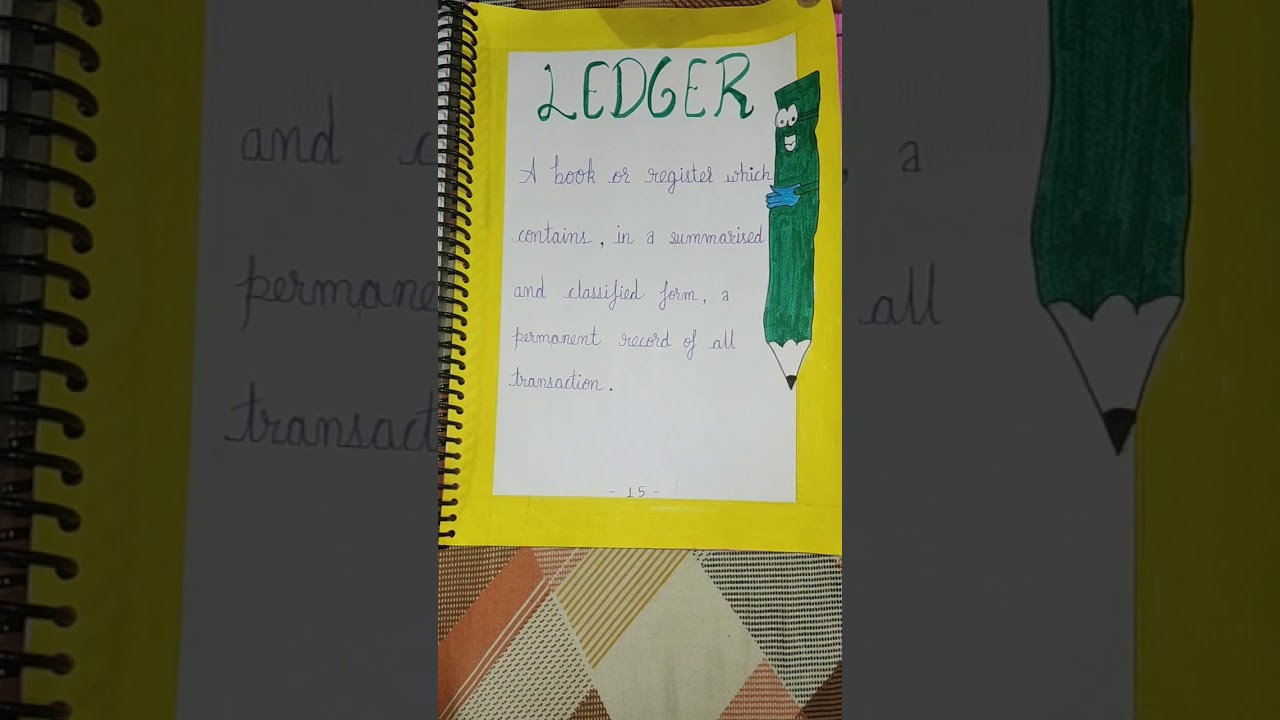 LEDGER
A book or register which
contains, in a summarised
and classified form, a
permanent record of all
transaction.
- 15 -